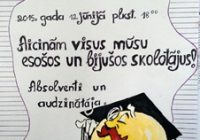 2015. gada 12. jūnijā plkst. 18⁰⁰
Aicinām visus mūsu
esošos un bijušos skolotājus!
Absolventi un
audzinātāja